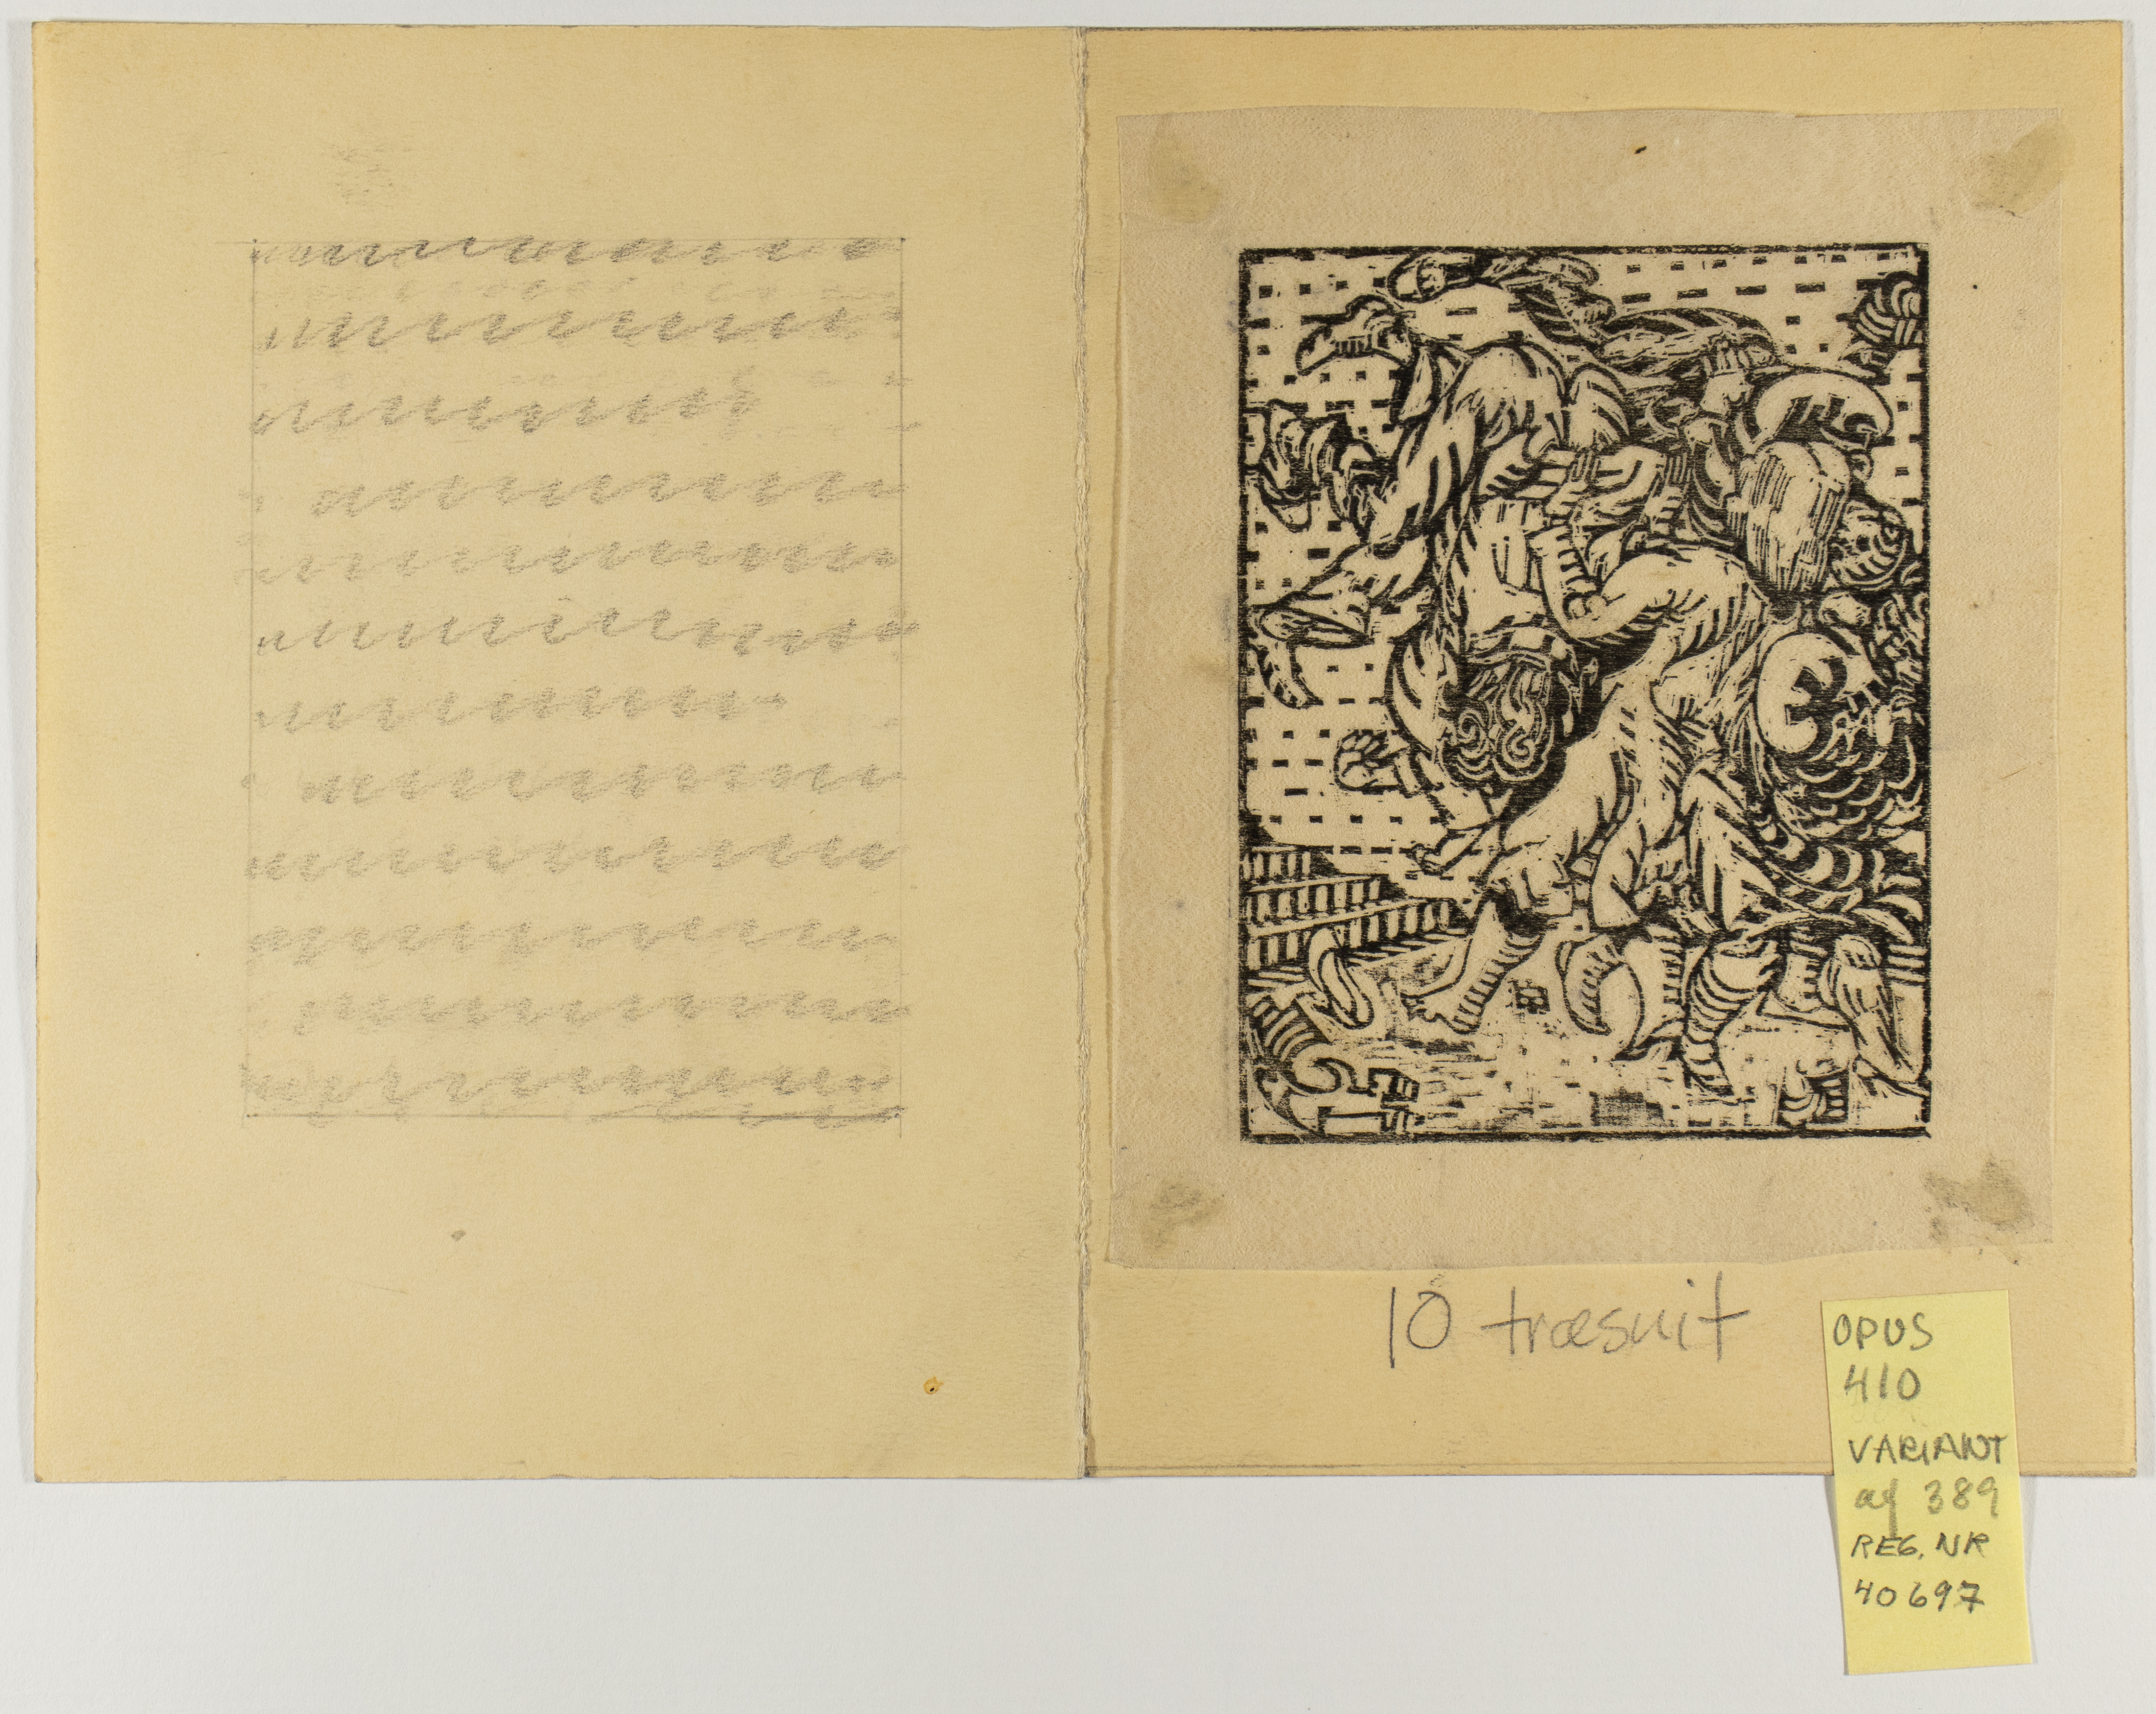 10 træsnit
OPUS
410
VARIANT
af 389
REG. NR
40697